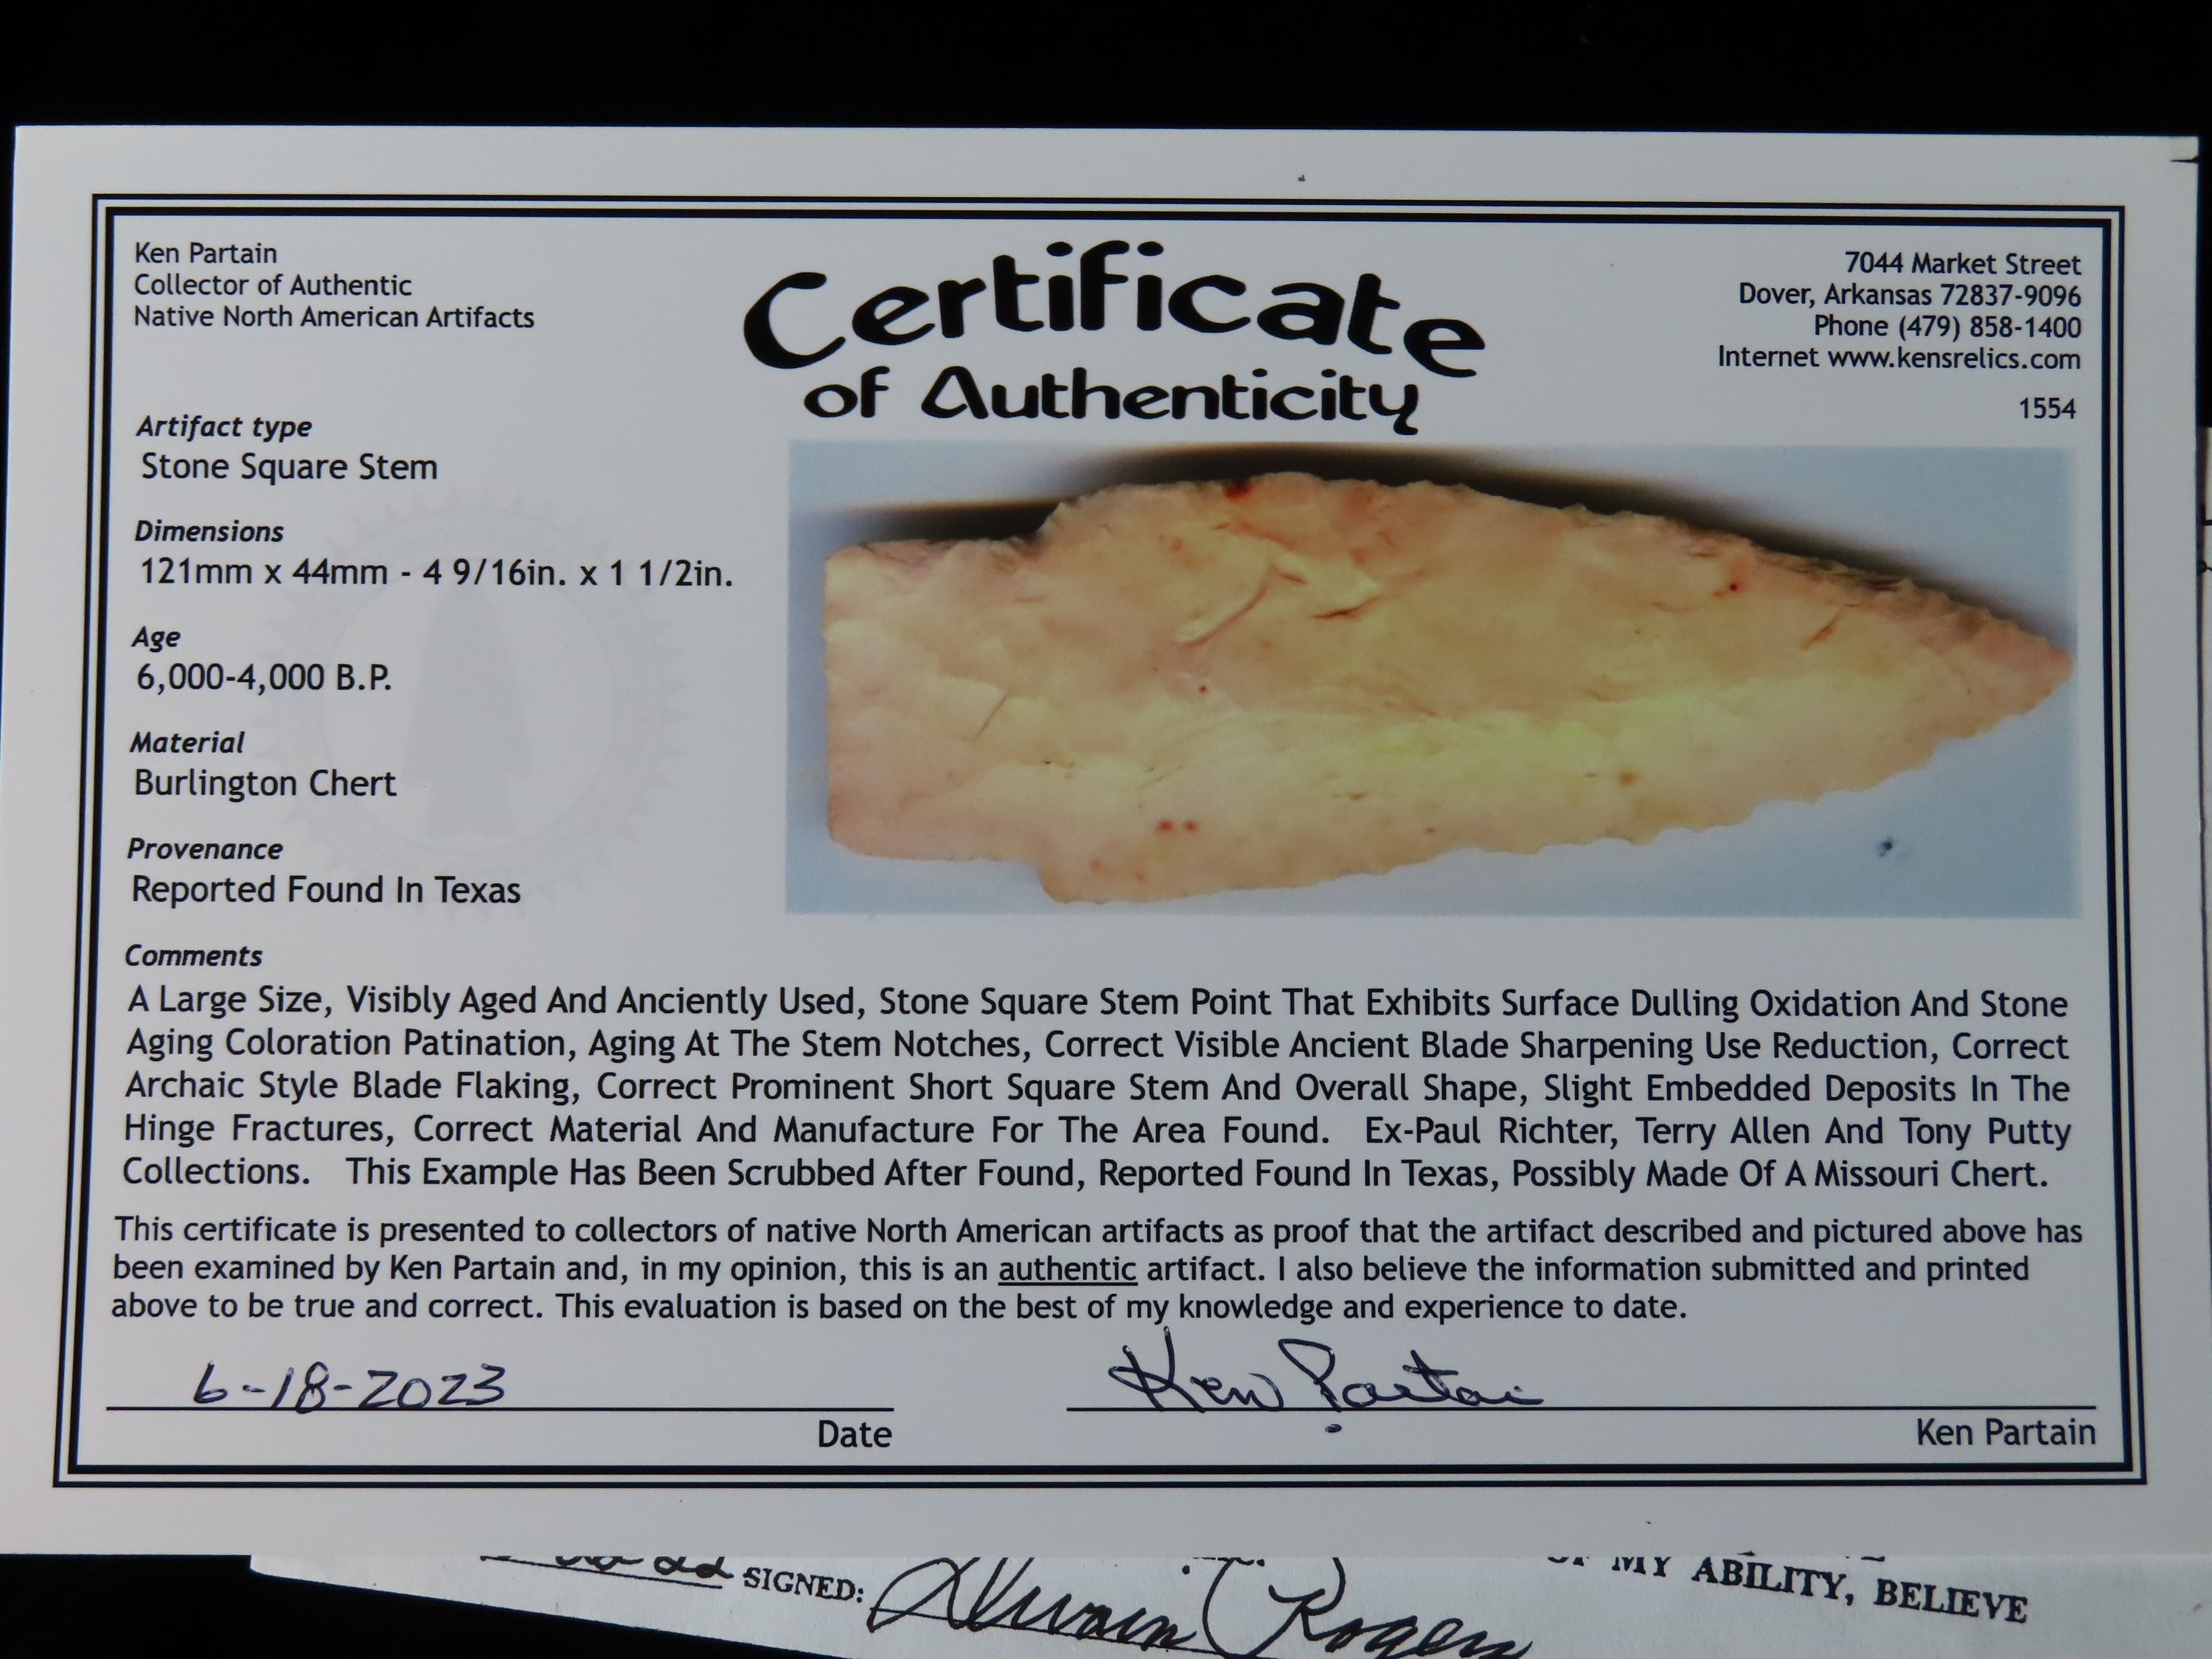 Ken Partain
Collector of Authentic
Native North American Artifacts
Certificate
of Authenticity
7044 Market Street
Dover, Arkansas 72837-9096
Phone (479) 858-1400
Internet www.kensrelics.com
1554
Artifact type
Stone Square Stem
Dimensions
121mm x 44mm - 4 9/16in. x 1 1/2in.
Age
6,000-4,000 B.P.
Material
Burlington Chert
Provenance
Reported Found In Texas
Comments
A Large Size, Visibly Aged And Anciently Used, Stone Square Stem Point That Exhibits Surface Dulling Oxidation And Stone
Aging Coloration Patination, Aging At The Stem Notches, Correct Visible Ancient Blade Sharpening Use Reduction, Correct
Archaic Style Blade Flaking, Correct Prominent Short Square Stem And Overall Shape, Slight Embedded Deposits In The
Hinge Fractures, Correct Material And Manufacture For The Area Found. Ex-Paul Richter, Terry Allen And Tony Putty
Collections. This Example Has Been Scrubbed After Found, Reported Found In Texas, Possibly Made Of A Missouri Chert.
This certificate is presented to collectors of native North American artifacts as proof that the artifact described and pictured above has
been examined by Ken Partain and, in my opinion, this is an authentic artifact. I also believe the information submitted and printed
above to be true and correct. This evaluation is based on the best of my knowledge and experience to date.
6-18-2023
Ken Partain
Date
Ken Partain
OF MY ABILITY, BELIEVE
SIGNED: Rogers